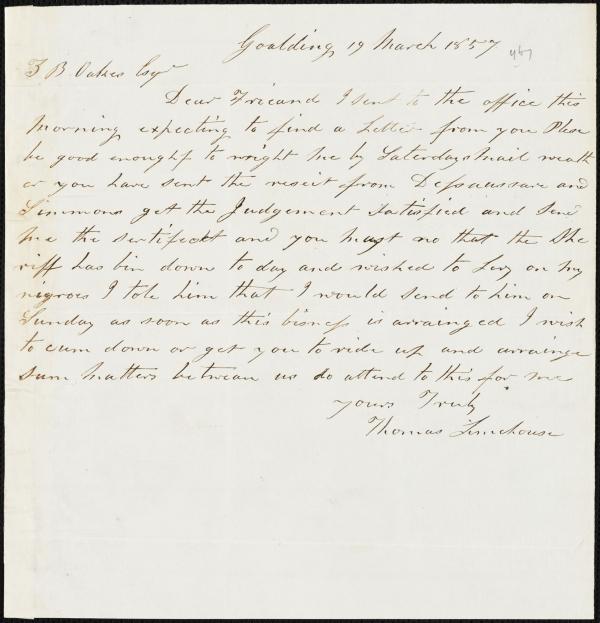 Goalding 19 March 1857
Z B Oakes Esqr
Dear Frieand I sent to the office this
morning expecting to find a Letter from you Please
be good enoughf to wright me by Saterdays mail weath
er you have sent the reseit from Dessaussare and
Simmons get the Judgement Satisfied and Send
me the sertifeckt and you must no that the She
riff has bin down to day and wished to Levy on my
nigroes I tole him that I would send to him on
Sunday as soon as this bisness is arrainged I wish
to cum down or get you to ride up and arrainge
sum matters between us do attend to this for me
yours Truly
Thomas Limehouse